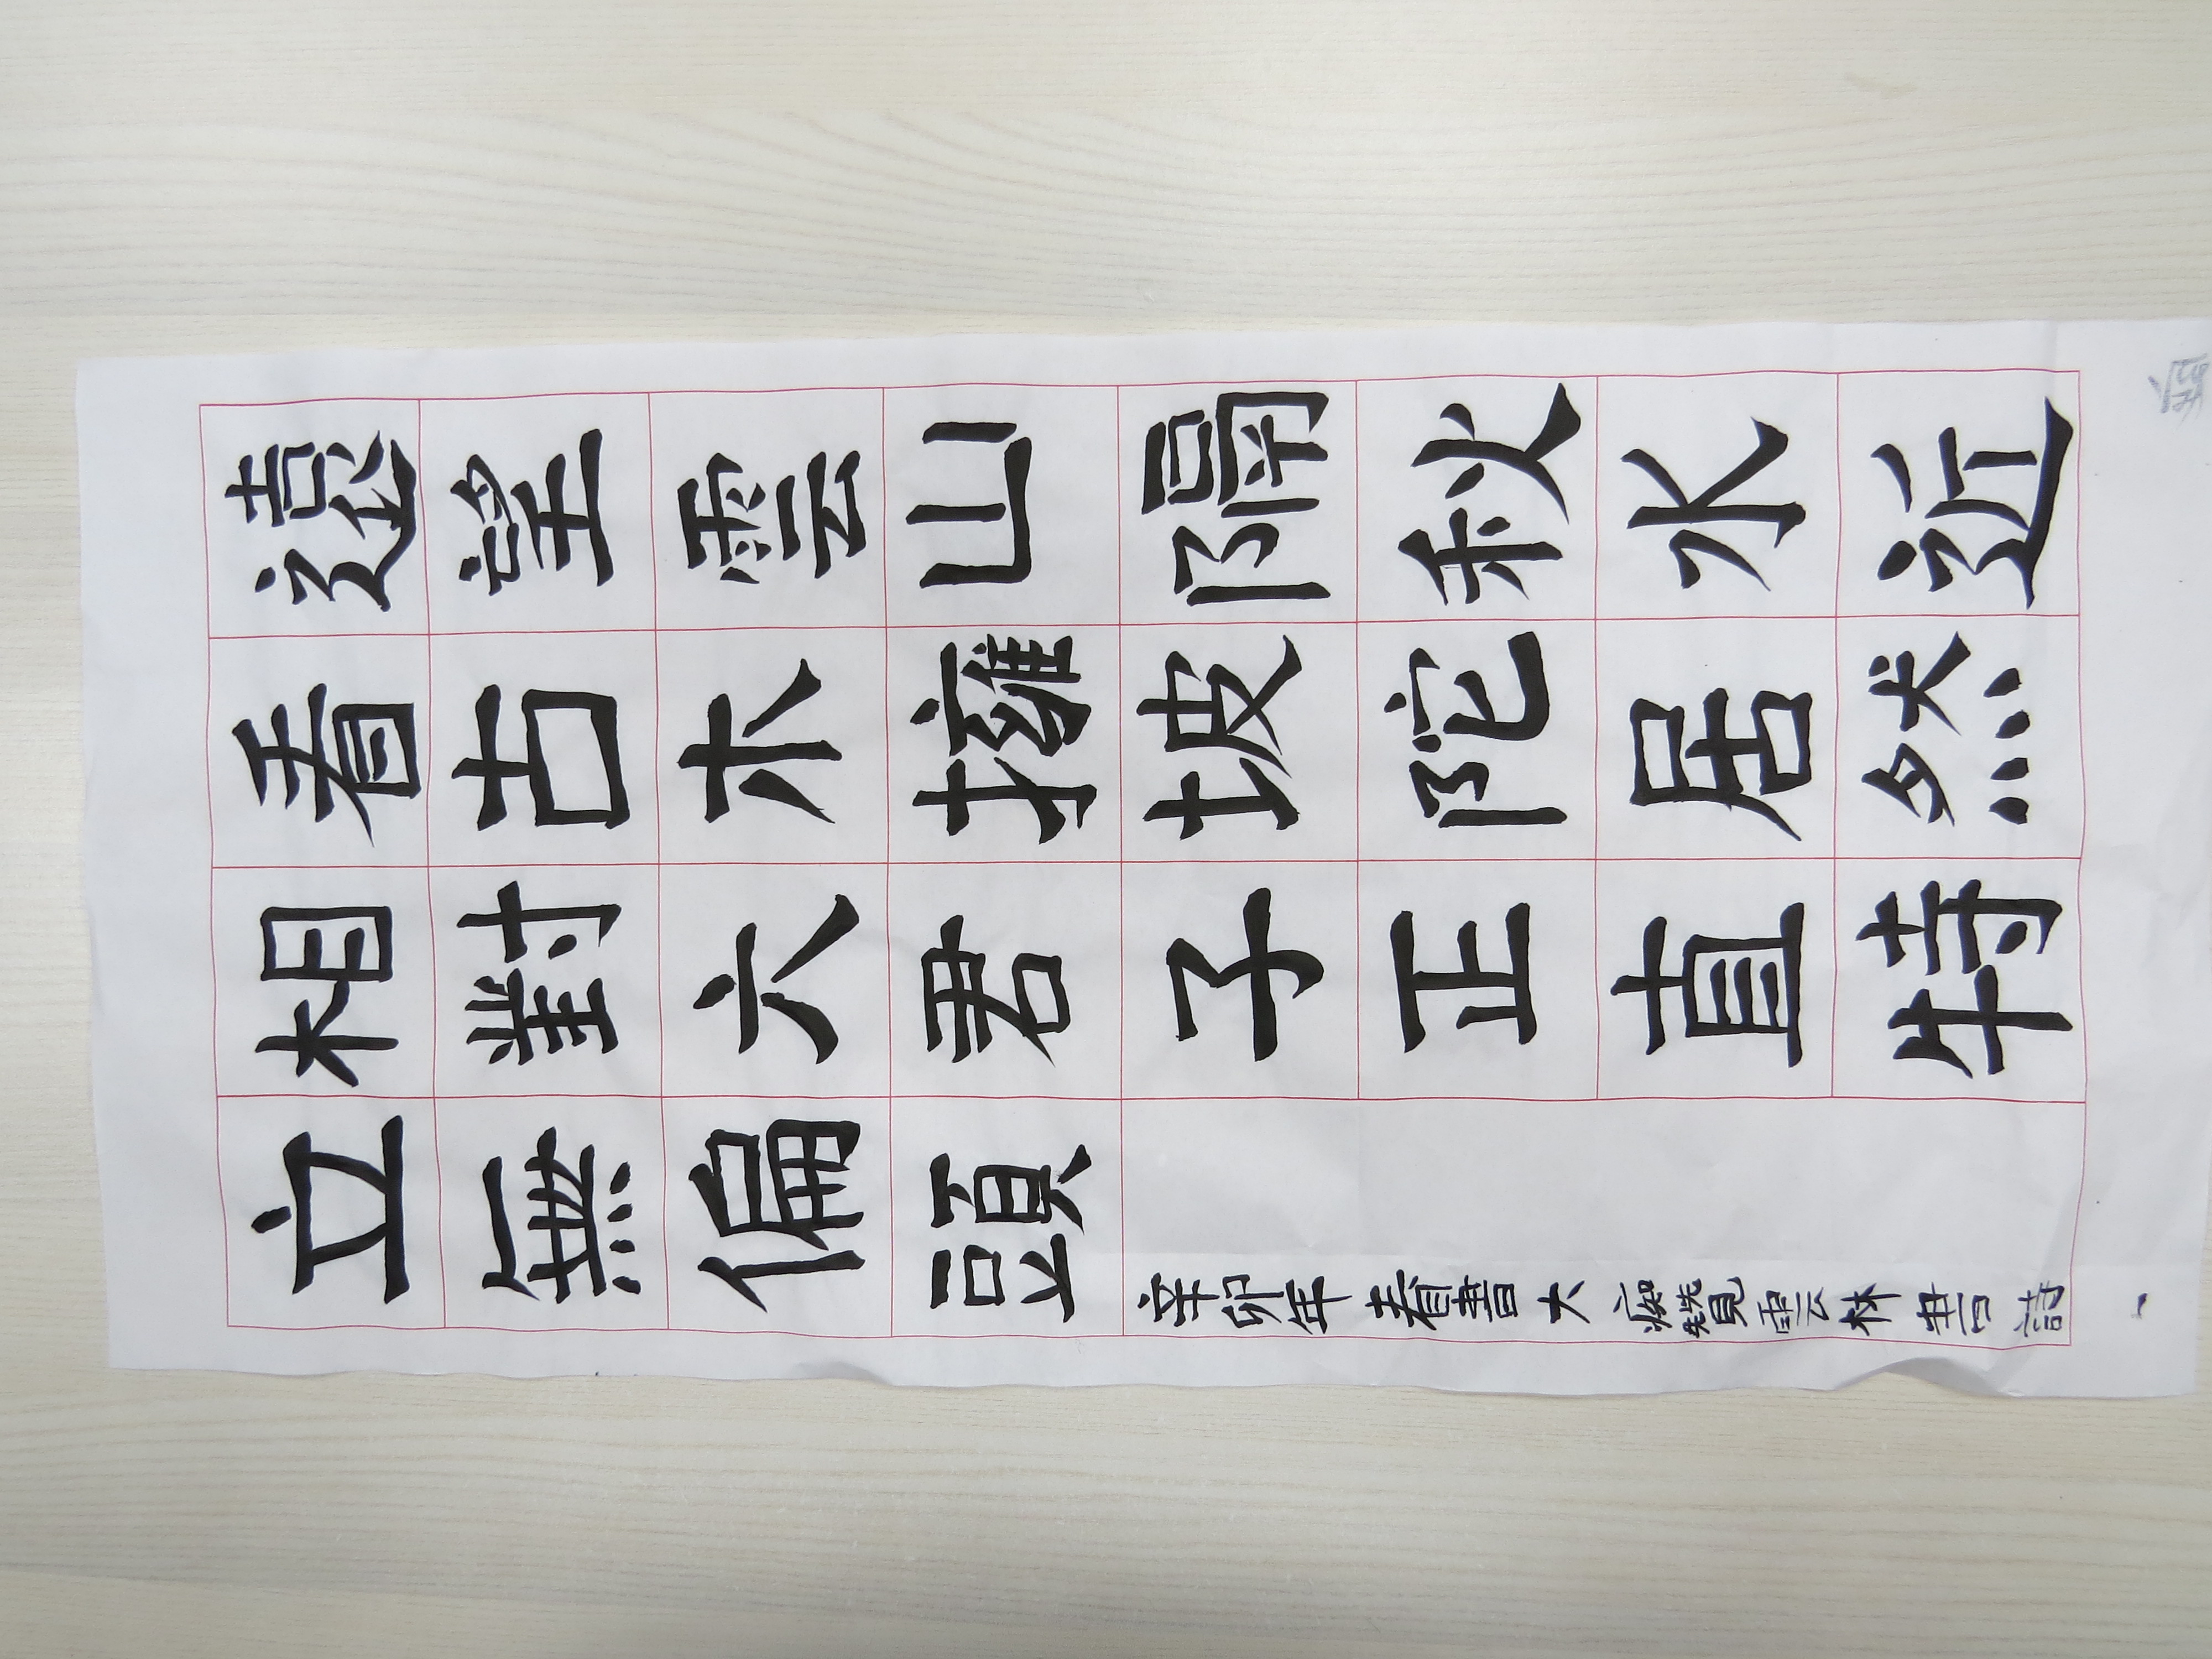 遠望雲山隔秋水近
看古木擁坡陀居然
相對六君子正直特
立無偏頭
辛卯年春書大癡雲林詩